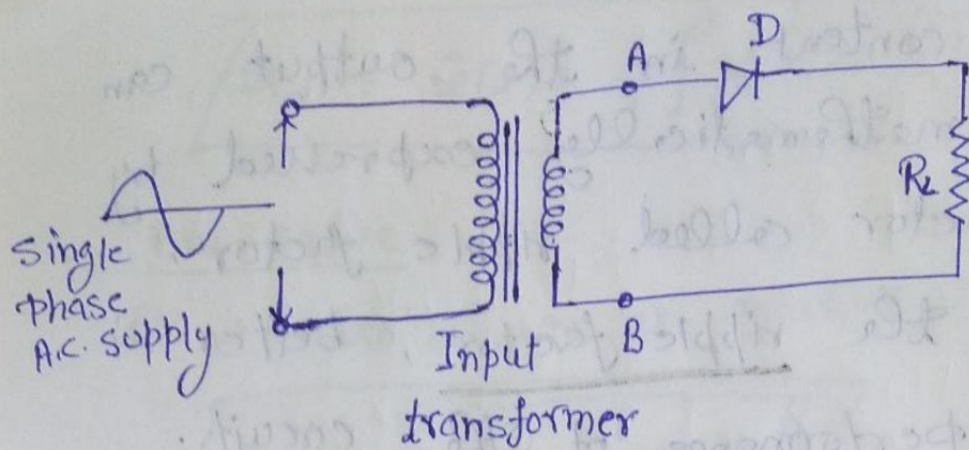 A
D
R_L
B
Single
phase
A.C. Supply
Input
transformer